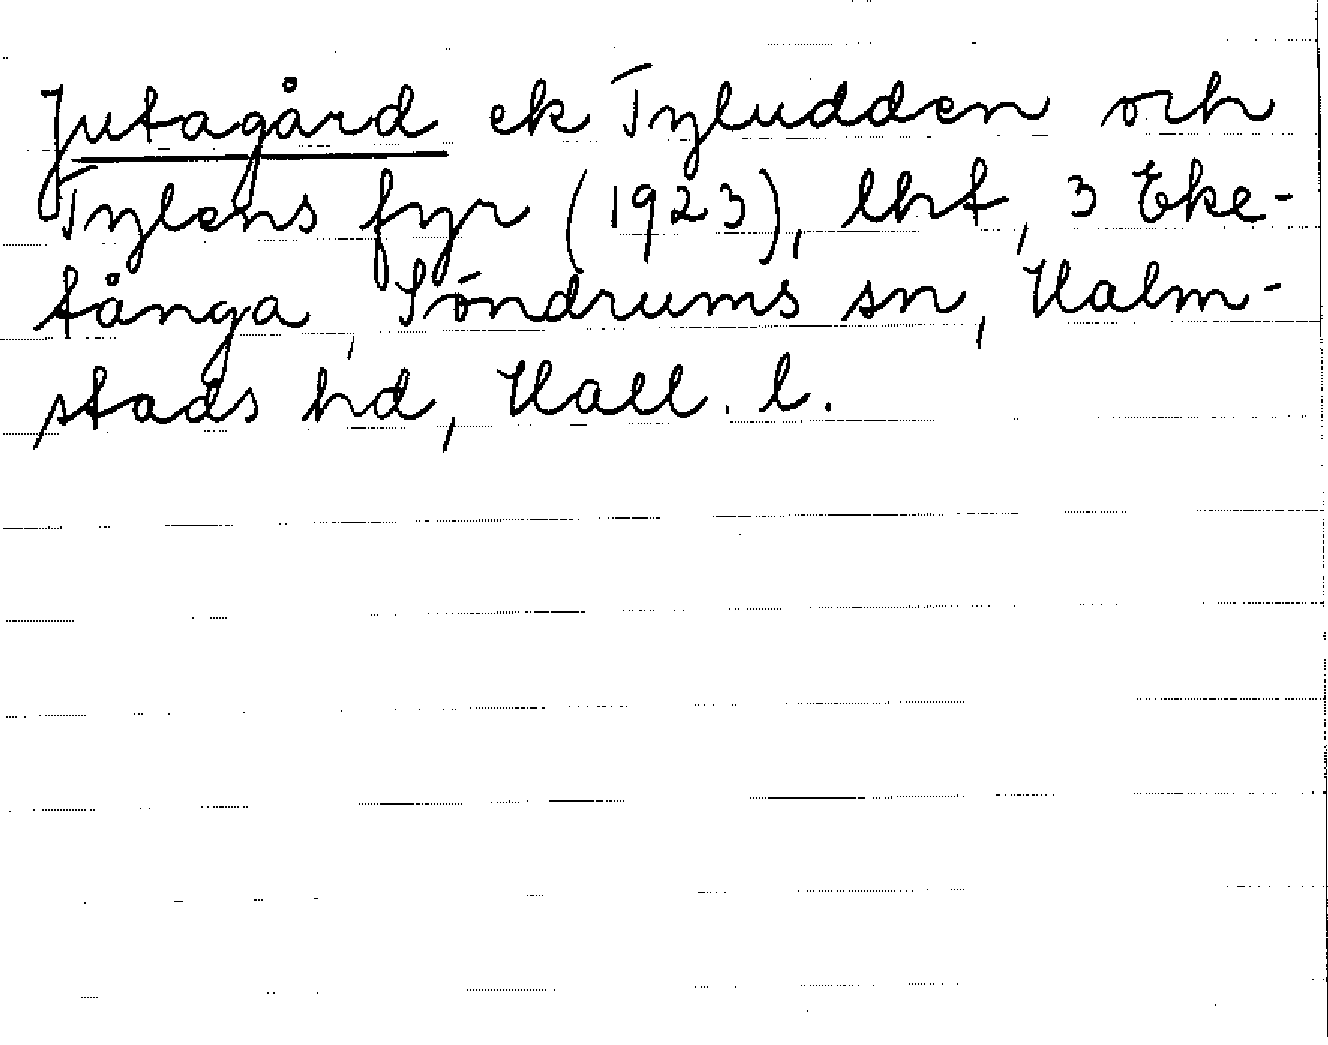 Jutagård ek Tyludden och
Tylens fyr (1923), lht, 3 Eke-
tånga, Söndrums sn, Halm-
stads hd, Hall. l.